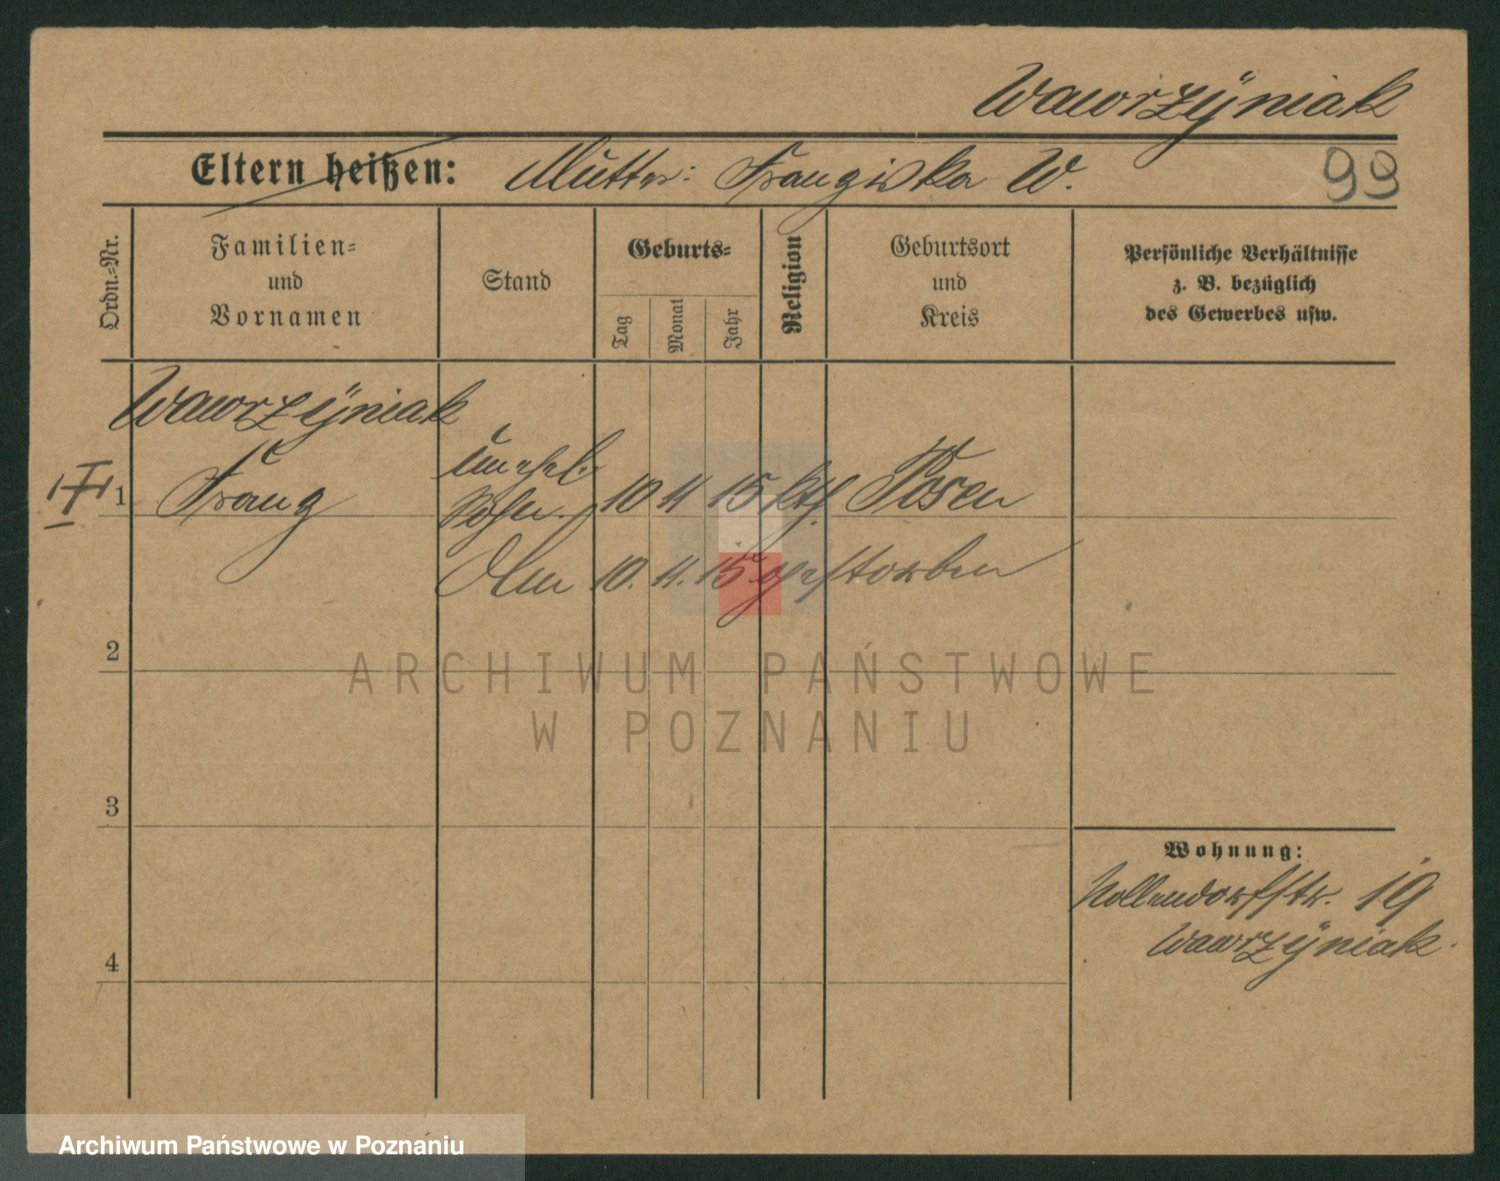 Wawrzÿniak
Eltern heißen: Mutter: Franziska W.
99
Ordn.=Nr.
Familien=
und
Vornamen
Stand
Geburts=
Tag
Monat
Jahr
Religion
Geburtsort
und
Kreis
Persönliche Verhältnisse
z. B. bezüglich
des Gewerbes usw.
Wawrzÿniak
unehel.
1 Franz Sohn 10 11 15 kth Posen
Am 10. 11. 15 gestorben
2
ARCHIWUM PAŃSTWOWE
W POZNANIU
3
Wohnung:
Nollendorfstr. 19
Wawrzÿniak
4
Archiwum Państwowe w Poznaniu